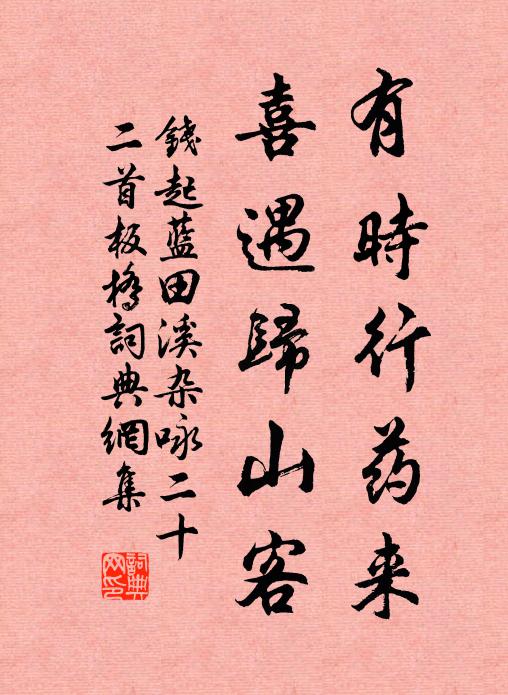 有時行药来
喜遇歸山客
錢起藍田溪杂咏二十
二首板橋詞典網集
詞典
网印